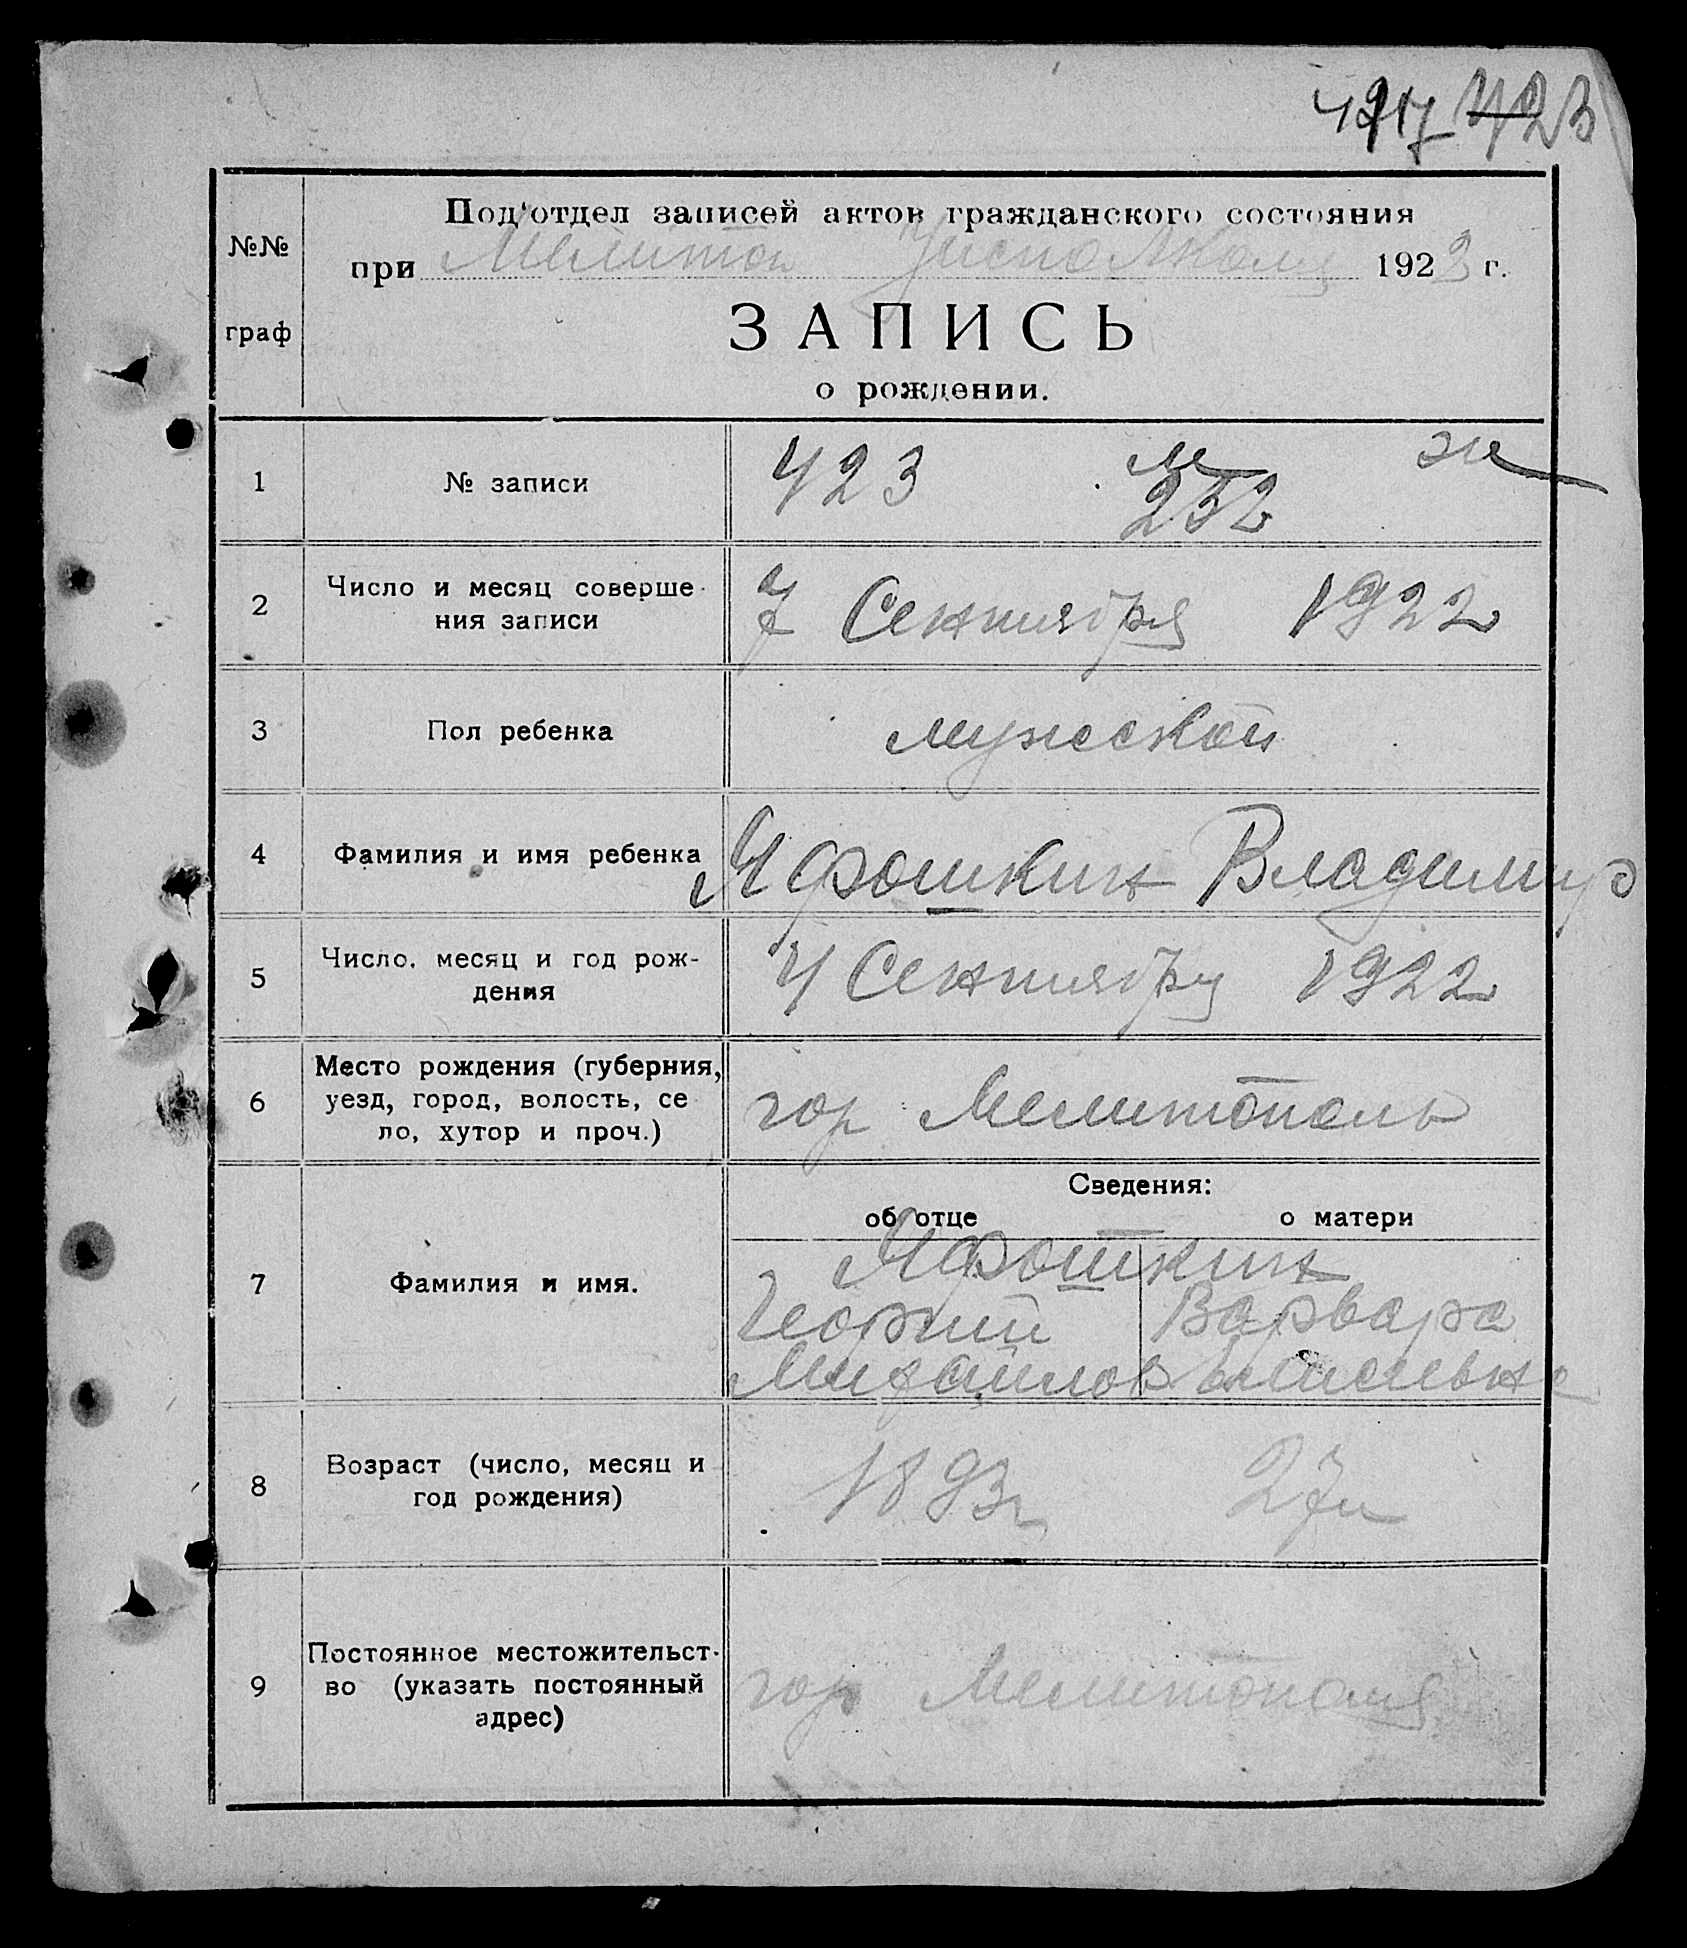 423
Под'отдел записей актов гражданского состояния
№№
при Мелитоп 1922 г.
граф
ЗАПИСЬ
о рождении.
1 № записи 423 м ж
232
2 Число и месяц соверше
ния записи
7 Сентября 1922
3 Пол ребенка мужской
4 Фамилия и имя ребенка Ярошкин Владимир
5 Число, месяц и год рож-
дения
4 Сентября 1922
6 Место рождения (губерния,
уезд, город, волость, се
ло, хутор и проч.)
гор Мелитополь
Сведения:
об отце о матери
7 Фамилия и имя.
Ярошкин
Георгий Варвара
Михайлов
8 Возраст (число, месяц и
год рождения)
1893г 27л
9 Постоянное местожительст-
во (указать постоянный
адрес)
гор Мелитополь